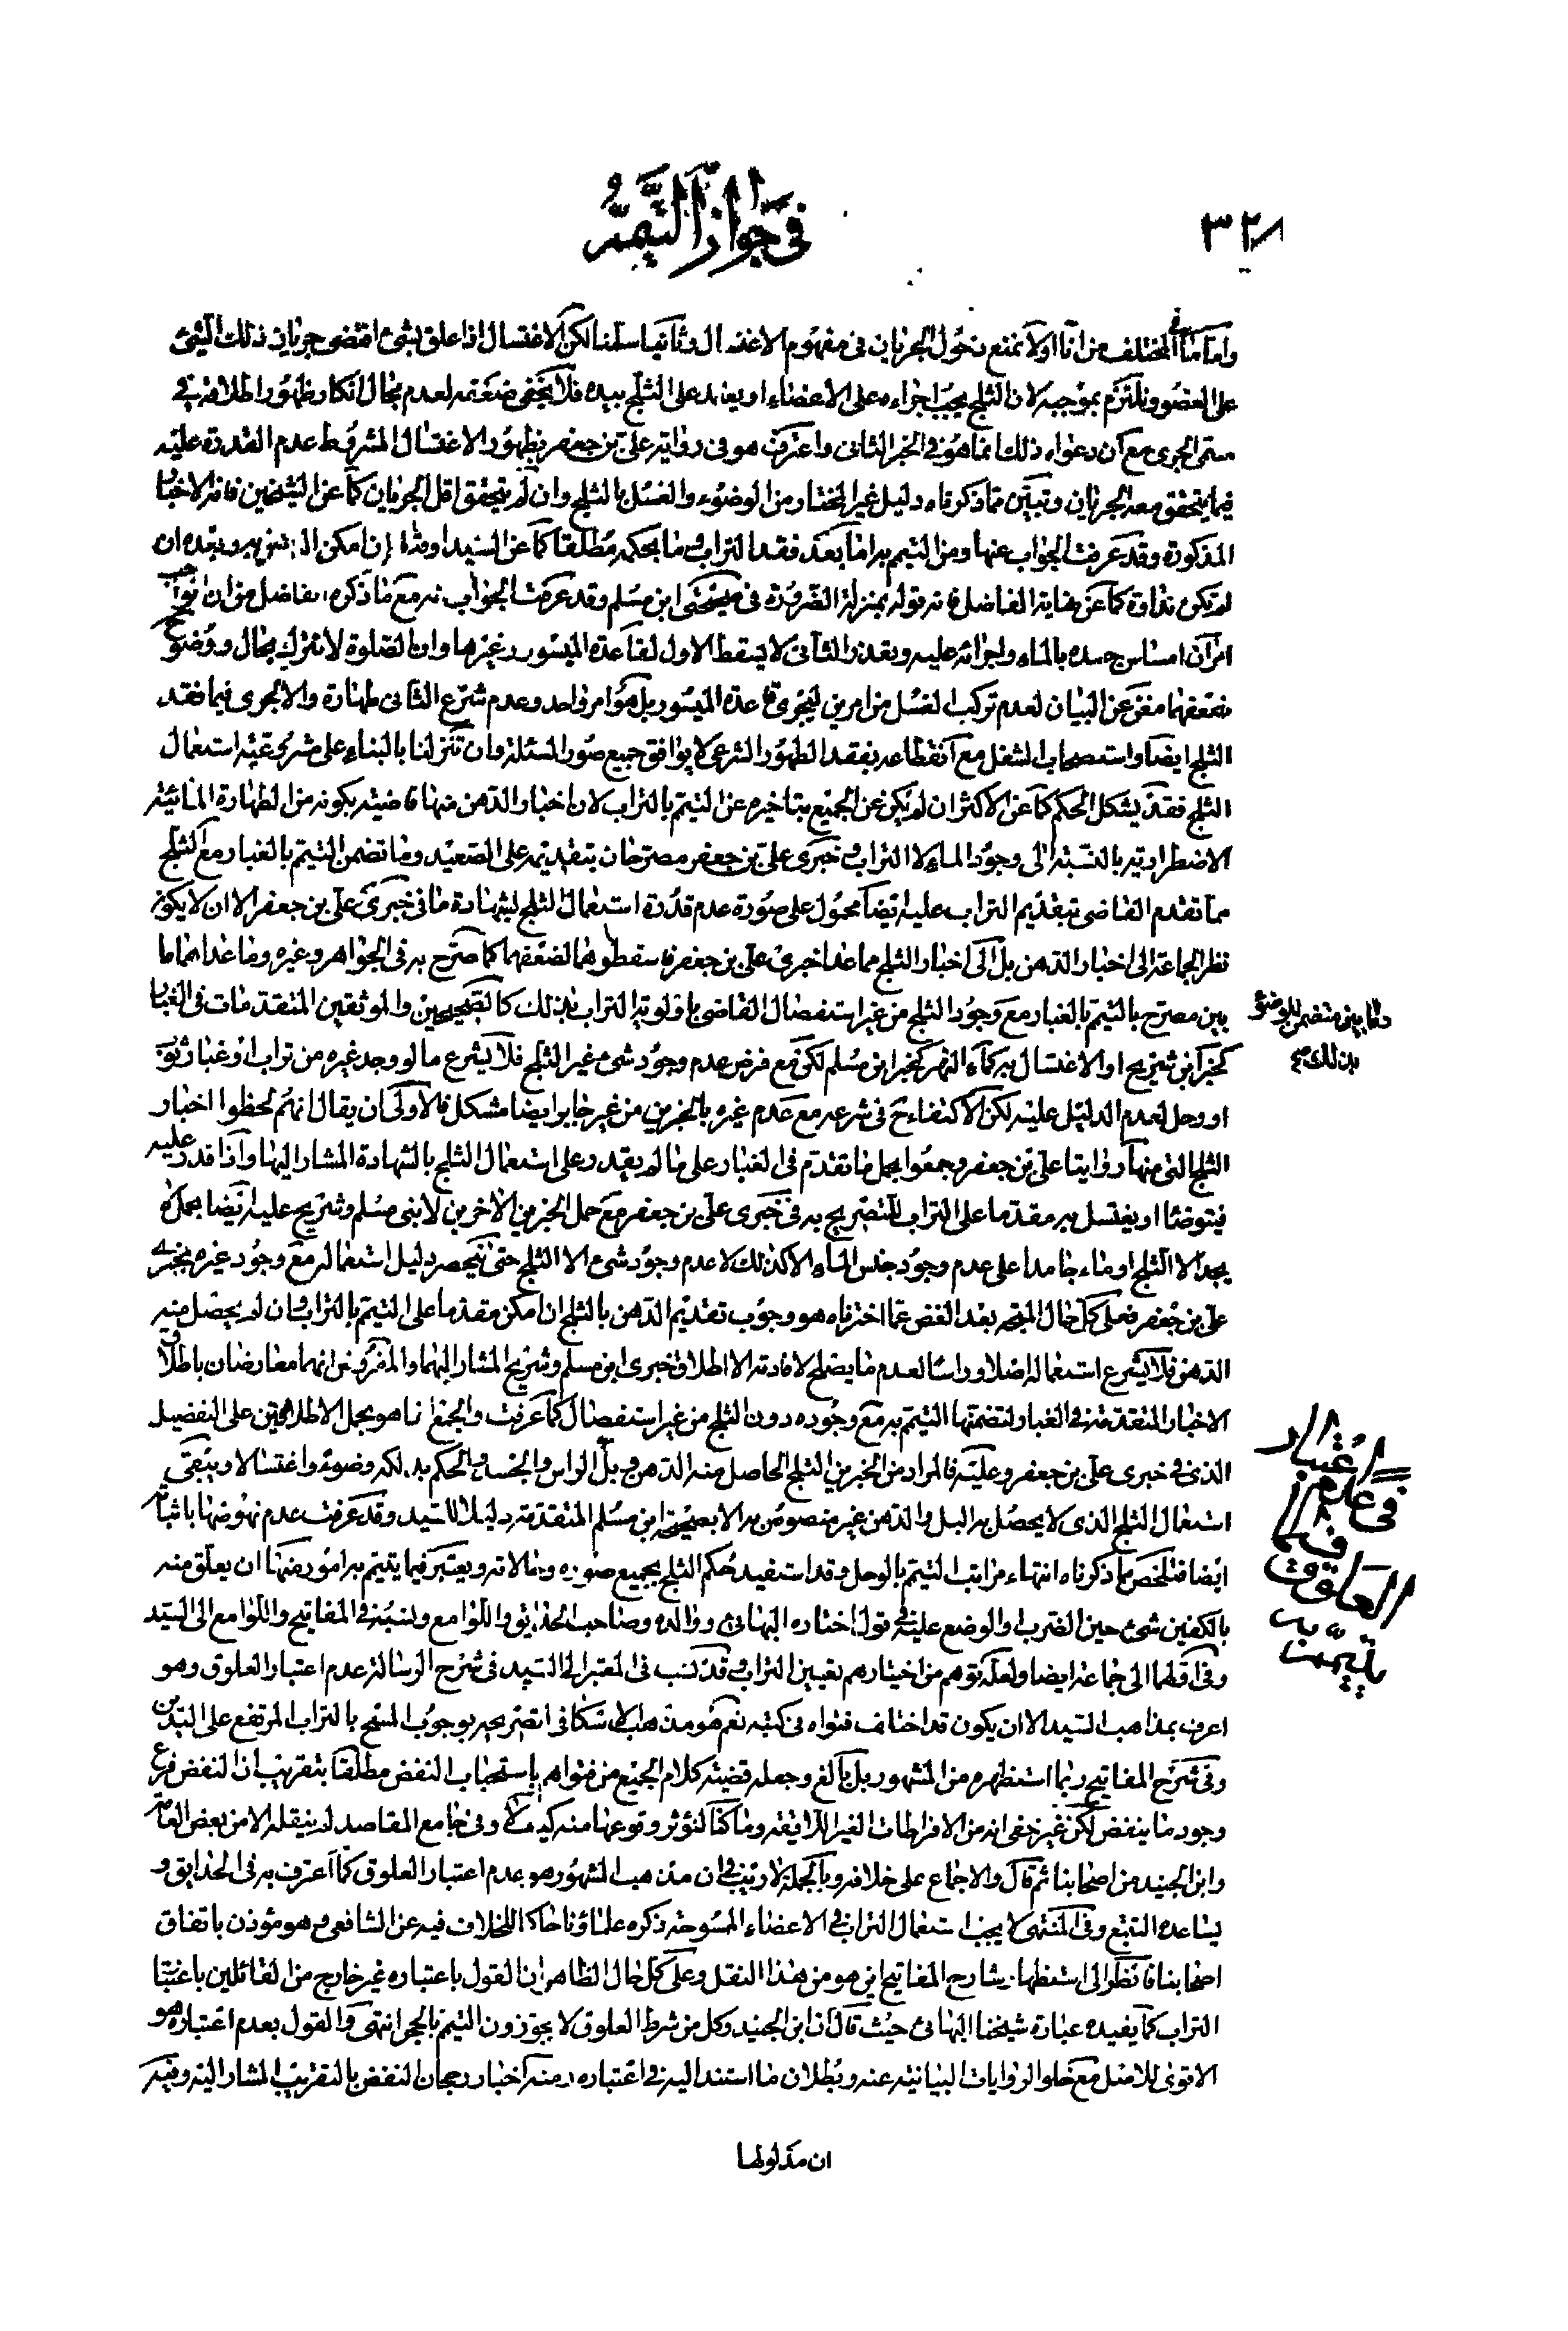 ٣٢٨
في جواز التيمم
واما ما في المختلف من انا اولا نمنع دخول الجريان في مفهوم الاغتسال وثانيا سلمنا لكن الاغتسال اذا علق بشئ اقتضى جريان ذلك الشئ
على العضو ونلتزم بموجبه لان الثلج يجب اجراءه على الاعضاء او يعتمد على الثلج بيده فلا يخفى ضعفه لعدم مجال انكار ظهور اطلاقه في
مسمى الجرى مع ان دعواه ذلك انما هو في الخبر الثاني واعترف هو في رواية على بن جعفر بظهور الاغتسال المشروط عدم القدرة عليه
فيما يتحقق معه الجريان وتبين مما ذكرناه دليل غير المختار من الوضوء والغسل بالثلج وان لم يتحقق اقل الجريان كما عن الشيخين فانه الاخبار
المذكورة وقد عرفت الجواب عنها ومن التيمم به اما بعد فقد التراب وما بحكمه مطلقا كما عن السيد او
لم تكن نداوة كما عن نهاية الفاضل فانه قوله بمنزلة الضرورة في صحيحتى ابن مسلم وقد عرفت الجواب عنه مع ما ذكره الفاضل من ان الواجب
امران امساس جسده بالماء واجرائه عليه وبتعذر الثاني لا يسقط الاول لقاعدة الميسور وغيرها وان الصلوة لا تترك بحال ووضوح
ضعفهما مغن عن البيان لعدم تركب الغسل من امرين ليجرى قاعدة الميسور بل هو امر واحد وعدم شرع الثاني طهارة والا لجرى فيما فقد
الثلج ايضا واستصحاب الشغل مع انقطاعه بفقد الطهور الشرعي لا يوافق جميع صور المسئلة وان تنزلنا بالبناء على مشروعية استعمال
الثلج فقد يشكل الحكم كما عن الاكثر ان لم يكن عن الجميع بتاخيره عن التيمم بالتراب لان اخبار الدهن منها قاضية بكونه من الطهارة المائية
الاضطرارية بالنسبة الى وجود الماء لا التراب وخبرى على بن جعفر مصرحان بتقديمه على الصعيد وما تضمن التيمم بالغبار مع الثلج
مما تقدم القاضى بتقديم التراب عليه ايضا محمول على صورة عدم قدرة استعمال الثلج لشهادة ما في خبرى على بن جعفر الا ان لا يكون
نظر الجماعة الى اخبار الدهن بل الى اخبار الثلج مما عدا خبرى على بن جعفر فاسقطوهما لضعفهما كما صرح به في الجواهر وغيره وما عداهما ما
بين مصرح بالتيمم بالغبار مع وجود الثلج من غير استفصال القاضى باولوية التراب بذلك كالصحيحين والموثقين المتقدمات في الغبار
كخبر ابن شريح او الاغتسال به كماء النهر كخبر ابن مسلم لكن مع فرض عدم وجود شئ غير الثلج فلا يشرع ما لو وجد غيره من تراب او غبار ثوب
او وحل لعدم الدليل عليه لكن الاكتفاء ح في شرعه مع عدم غيره بالخبرين من غير جابر ايضا مشكل فالاولى ان يقال انهم لحظوا اخبار
الثلج التى منها روايتا على بن جعفر وجمعوا بحمل ما تقدم في الغبار على ما لم يقدر على استعمال الثلج بالشهادة المشار اليها واذا قدر عليه
فيتوضأ او يغتسل به مقدما على التراب للتصريح به في خبرى على بن جعفر مع حمل الخبرين الاخرين لابنى مسلم وشريح عليه ايضا بحمل لا
يجد الا الثلج او ماء جامدا على عدم وجود جنس الماء الا كذلك لا عدم وجود شئ الا الثلج حتى ينحصر دليل استعماله مع وجود غيره بخبرى
على بن جعفر فعلى كل حال المتجه بعد الغض عما اخترناه هو وجوب تقديم الدهن بالثلج ان امكن مقدما على التيمم بالتراب وان لم يحصل منه
الدهن فلا يشرع استعماله اصلا وراسا لعدم ما يصلح لافادته الا اطلاق خبرى ابن مسلم وشريح المشار اليهما والمفروض انهما معارضان باطلاق
الاخبار المتقدمة في الغبار لتضمنها التيمم به مع وجوده دون الثلج من غير استفصال كما عرفت والجمع انما هو بحمل الاطلاقين على التفصيل
الذى في خبرى على بن جعفر وعليه فالمراد من الخبرين الثلج الحاصل منه الدهن وبل الراس والجسد والحكم بذلك وضوء واغتسالا ويبقى
استعمال الثلج الذى لا يحصل به البل والدهن غير منصوص به الا بصحيحة ابن مسلم المتقدمة دليلا للسيد وقد عرفت عدم نهوضها باثباته
ايضا فتلخص بما ذكرناه انتهاء مراتب التيمم بالوحل وقد استفيد حكم الثلج بجميع صوره وحالاته ويعتبر فيما يتيمم به امور منها ان يعلق منه
بالكفين شئ حين الضرب والوضع عليه في قول اختاره البهائى ووالده وصاحب الحدائق واللوامع ونسبه في المفاتيح واللوامع الى السيد
وفي اولهما الى جماعة ايضا ولعله توهم من اختيارهم تعيين التراب وقد نسب في المعتبر الى السيد في شرح الرسالة عدم اعتبار العلوق وهو
اعرف بمذاهب السيد الا ان يكون قد اختلف فتواه في كتبه نعم هو مذهب الاسكافي لتصريحه بوجوب المسح بالتراب المرتفع على اليدين
وفي شرح المفاتيح ربما استظهره من المشهور بل بالغ وجعله قضية كلام الجميع من فتواهم باستحباب النفض مطلقا بتقريب ان النفض فرع
وجود ما ينفض لكن غير خفى انه من الافراطات الغير اللائقة وما كنا لنؤثر وقوعها منه كيف لا وفي جامع المقاصد لم ينقله الا من بعض العامة
وابن الجنيد من اصحابنا ثم قال والاجماع على خلافه وبالجملة لا ريب في ان مذهب المشهور هو بعدم اعتبار العلوق كما اعترف به في الحدايق و
يساعده التتبع وفي المنتهى لا يجب استعمال التراب في الاعضاء الممسوحة ذكره علماؤنا حاكيا للخلاف فيه عن الشافعى وهو مؤذن باتفاق
اصحابنا فانظر الى استظهار شارح المفاتيح اين هو من هذا النقل وعلى كل حال الظاهر ان القول باعتباره غير خارج من القائلين باعتبار
التراب كما يفيده عبارة شيخنا البهائى حيث قال ان ابن الجنيد وكل من شرط العلوق لا يجوزون التيمم بالحجر انتهى والقول بعدم اعتباره هو
الاقوى للاصل مع خلو الروايات البيانية عنه وبطلان ما استند اليه في اعتباره منه اخبار رجحان النفض بالتقريب المشار اليه وفيه
ان مدلولها
وما بين متضمن للوضوء
بذلك صح
في عدم اعتبار
العلوق فيما
يتيمم به